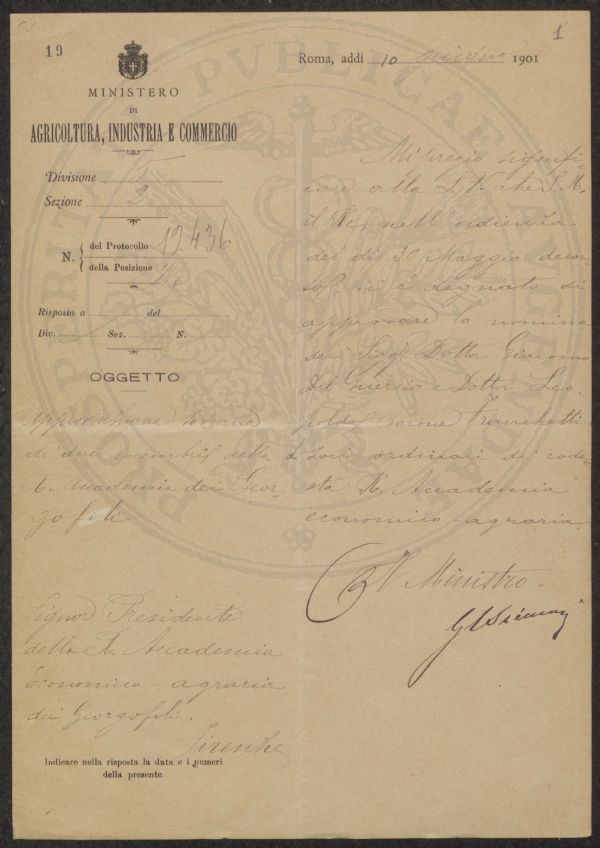 19
1
Roma, addì 10 giugno 1901
MINISTERO
DI
AGRICOLTURA, INDUSTRIA E COMMERCIO
Divisione
Sezione 2
N. del Protocollo 12436
della Posizione
Risposta a del
Div. Sez. N.
OGGETTO
Approvazione nomina
di due membri della
R. Accademia dei Geor
gofili
Mi pregio signifi
care alla S.V. che S.M.
il Re, nell'udienza
del dì 30 Maggio decor
so, si è degnato di
approvare la nomina
dei Sigg. Dottor Giacomo
Del Guercio e Dottor Leo
poldo barone Franchetti
a Soci ordinari di code
sta R. Accademia
economico agraria.
Il Ministro
Signor Presidente
della R. Accademia
Economico - agraria
dei Georgofili.
Firenze
Indicare nella risposta la data e i numeri
della presente.
PROSPERITATI PVBLICAE AVGENDAE